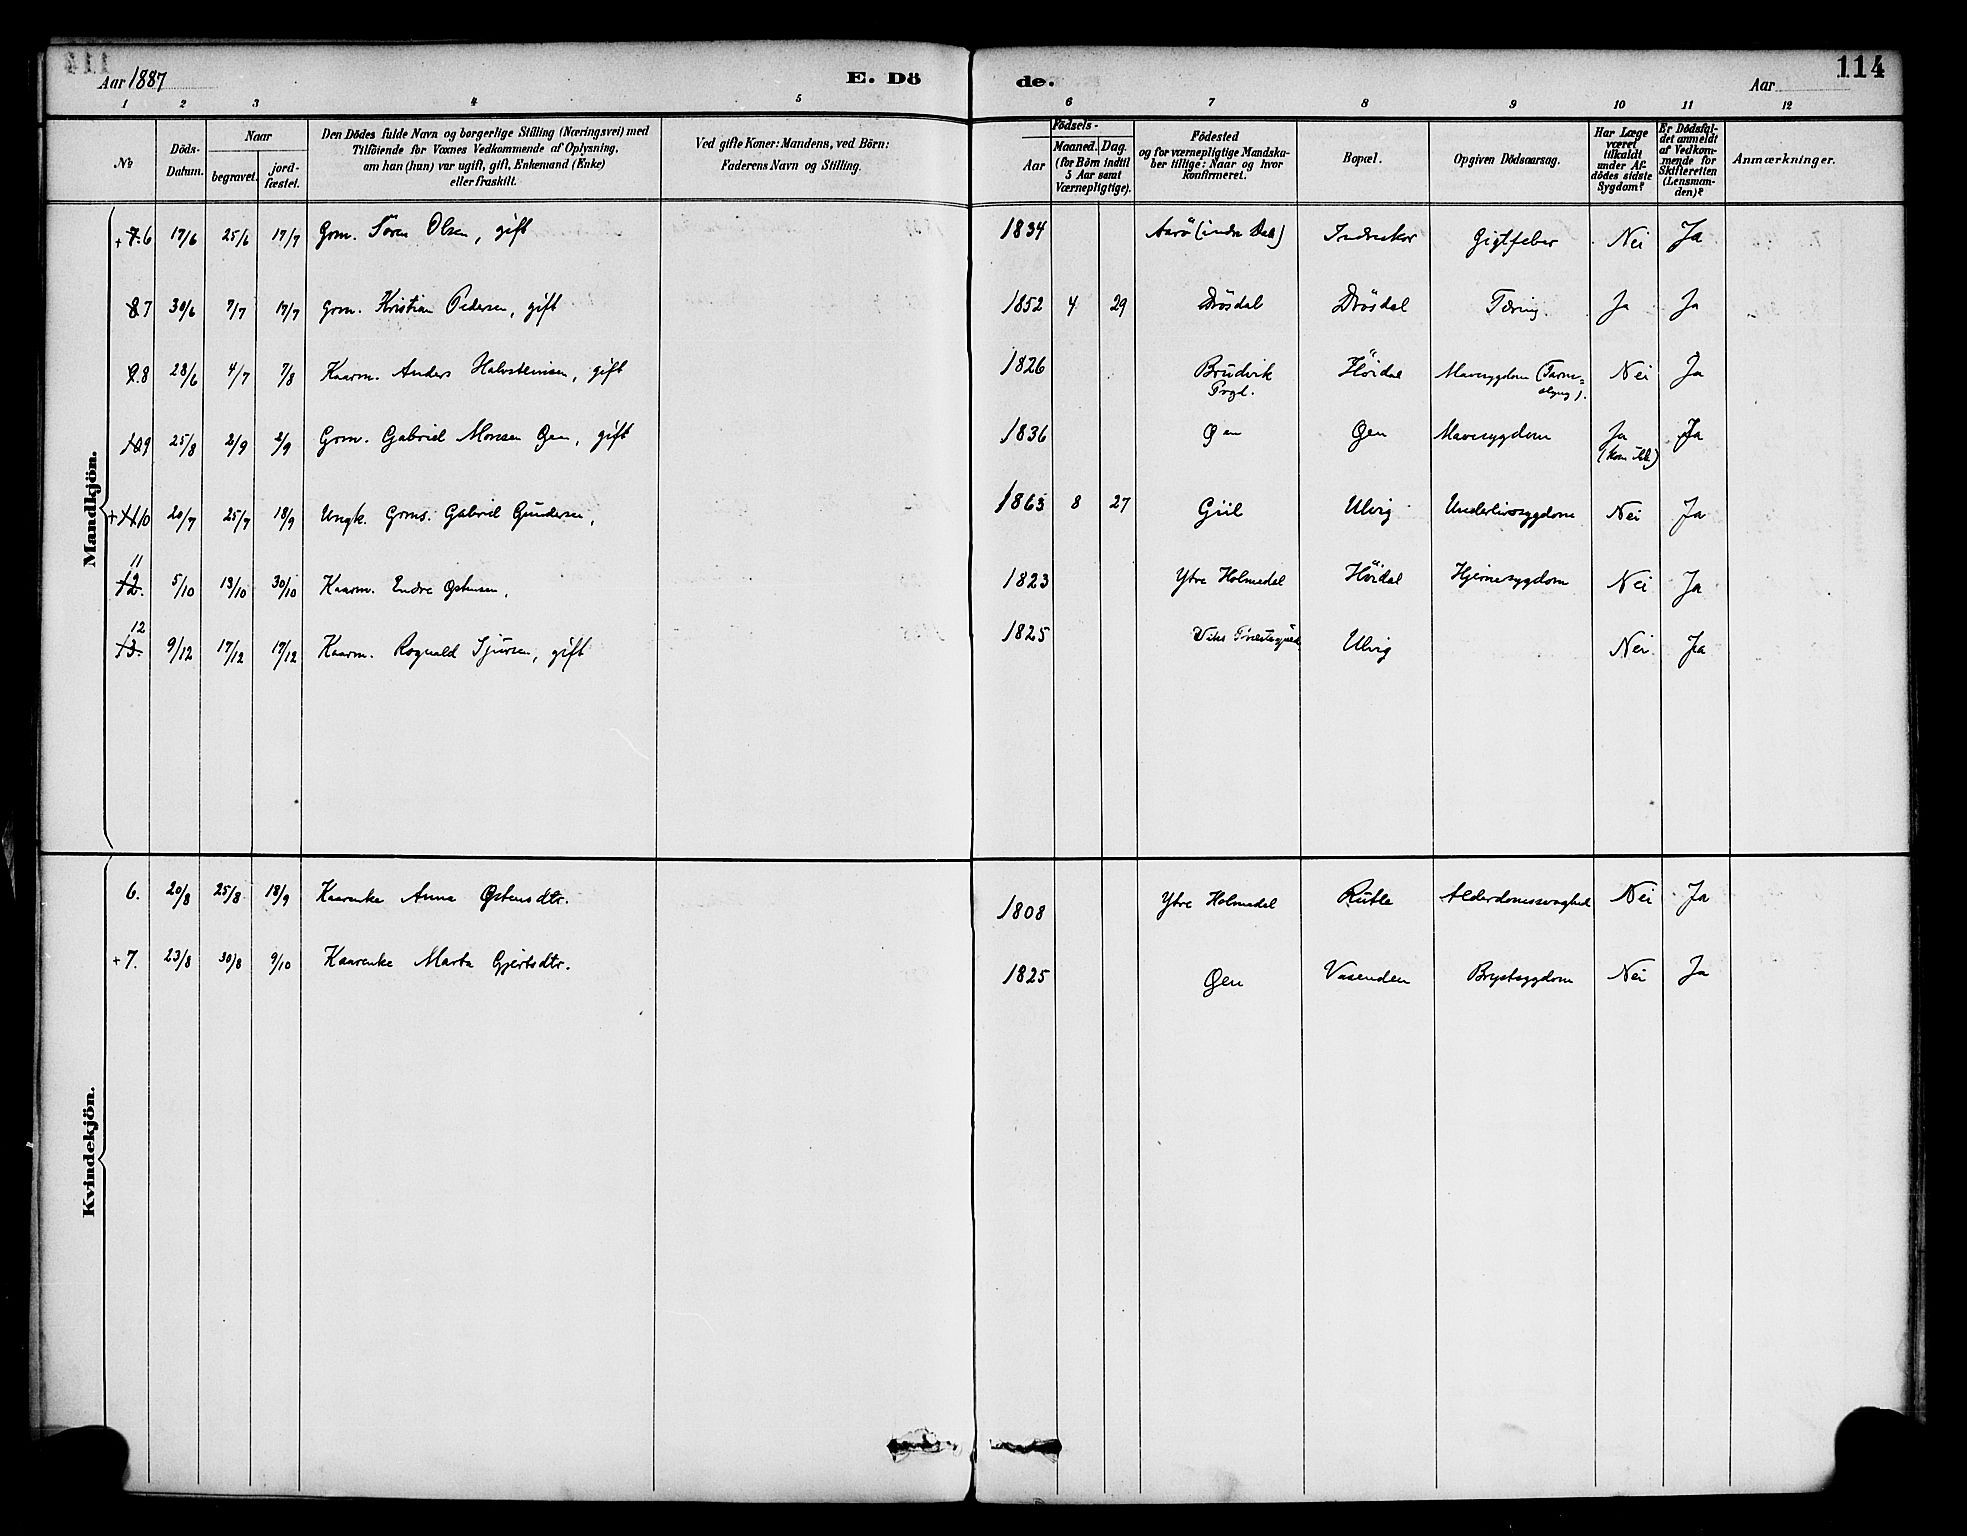 Aar 1887
E. Dö
de.
Aar
114
1 2 3 4 5 6 7 8 9 10 11 12
No
Döds-Datum.
Naar
begravet.
jord-fæstet.
Den Dödes fulde Navn og borgerlige Stilling (Næringsvei) med
Tilföiende for Voxnes Vedkommende af Oplysning,
om han (hun) var ugift, gift, Enkemand (Enke)
eller fraskilt.
Ved gifte Koner: Mandens, ved Börn:
Faderens Navn og Stilling.
Födsels-
Aar
Maaned. Dag.
(for Börn indtil
5 Aar samt
Værnepligtige).
Födested
og for værnepligtige Mandska-
ber tillige: Naar og hvor
konfirmeret.
Bopæl.
Opgiven Dödsaarsag.
Har Læge
været
tilkaldt
under Af-
dödes sidste
Sygdom?
Er Dödsfal-
det anmeldt
af Vedkom-
mende for
Skifteretten
(Lensman-
den)?
Anmærkninger.
Mandkjön.
+ 7. 6 17/6 25/6 17/7 Grm. Sören Olsen, gift 1834 Aarö (indre Dale) Indrekor Gigtfeber Nei Ja
8 7 30/6 7/7 17/7 Grm. Kristian Pedersen, gift 1852 4 29 Drösdal Drösdal Tæring. Ja Ja
9. 8 28/6 4/7 7/8 Kaarm. Anders Halvsteinsen, gift 1826 Brudvik Prgd. Höidal Mavesygdom (Tarm= Nei Ja
10 9 25/8 2/9 2/9 Grm. Gabriel Monsen Øen, gift 1836 Øen Øen Mavesygdom Ja (kom ikke) Ja
+ 11 10 20/7 25/7 18/9 Ungk. Grms. Gabriel Gundersen, 1863 8 27 Giil Ulvig Underlivssygdom Nei Ja
11
12. 5/10 13/10 30/10 Kaarm. Endre Østensen, 1823 Ytre Holmedal Höidal Hjernesygdom Nei Ja
12
13. 9/12 17/12 17/12 Kaarm. Rognald Sjursen, gift 1825 Viks Præstegjeld Ulvig Nei Ja
Kvindekjön.
6. 20/8 25/8 18/9 Kaarenke Anna Østensdtr. 1808 Ytre Holmedal Rutle Alderdomssvaghed Nei Ja
+ 7. 23/8 30/8 9/10 Kaarenke Marta Gjertsdtr. 1825 Øen Vasenden Brystsygdom Nei Ja